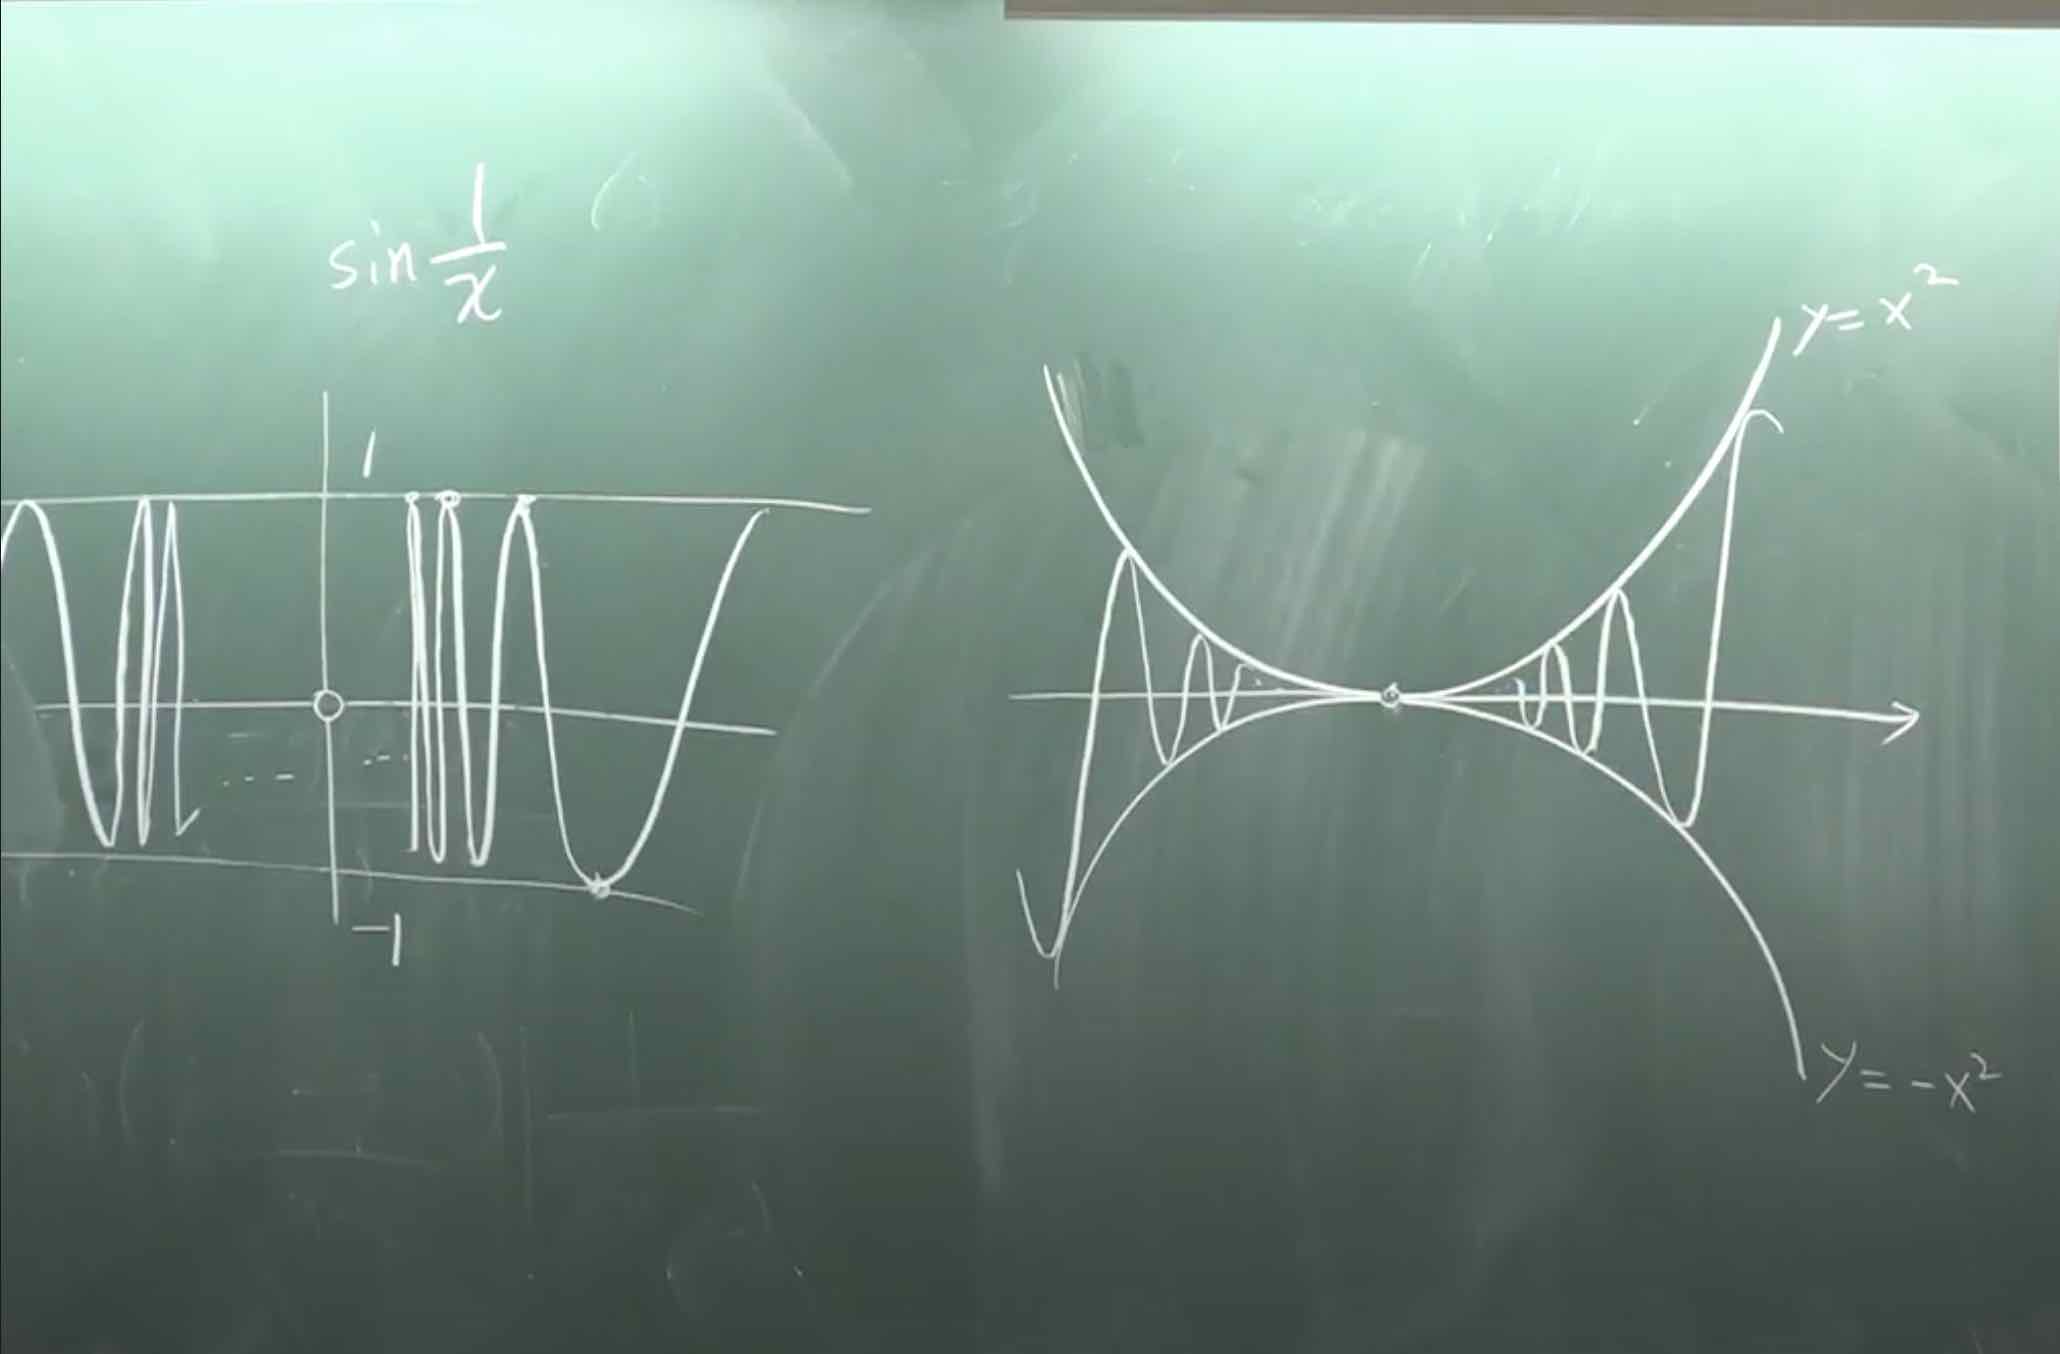 sin 1/x
1
-1
y = x²
y = -x²